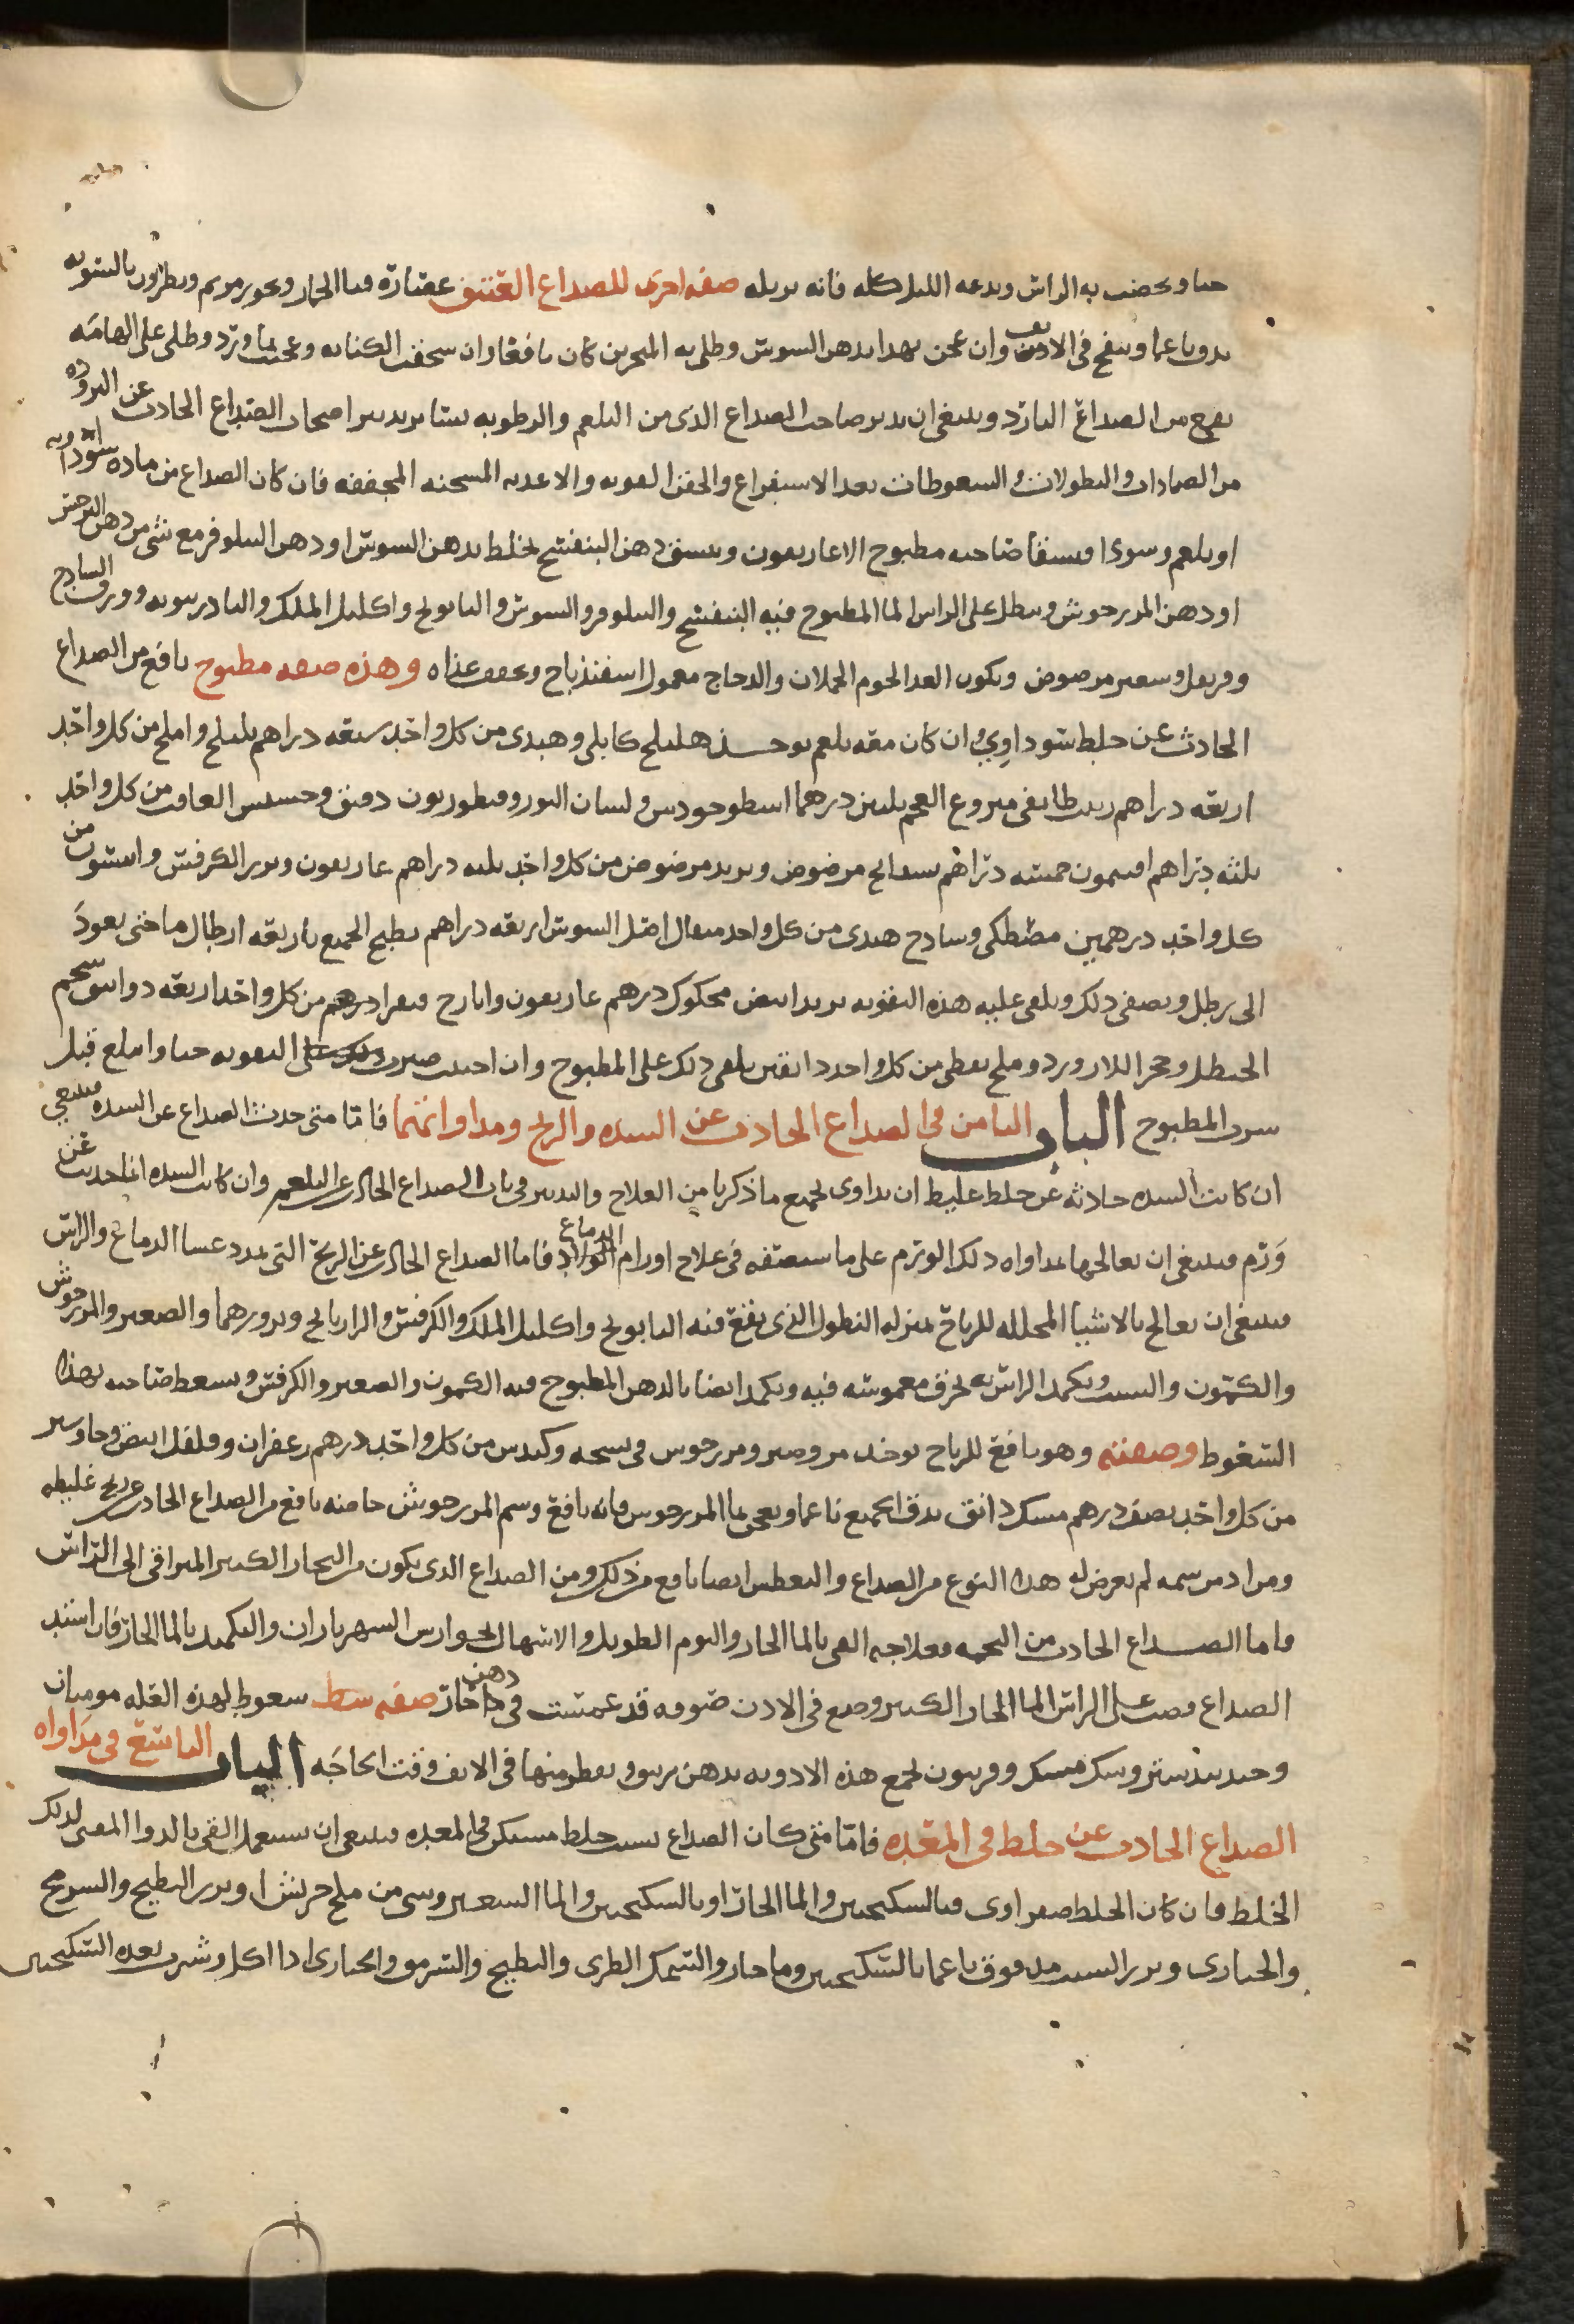 حنا ويخضب به الراس ويدعه الليل كله فانه يزيله صفه اخرى للصداع العتيق عصارة قثا الحمار وبخور مريم ونطرون بالسويه
يدق ناعما وينفخ في الانف وان عجن بهذا بدهن السوسن وطلي به المنخرين كان نافعا وان سحقت الكبابه وعجنت بماورد وطلي على الهامه
نفع من الصداع البارد وينبغي ان يدبر صاحب الصداع الذي من البلغم والرطوبه بسائر تدبير اصحاب الصداع الحادث عن البروده
من الضمادات والنطولات والسعوطات بعد الاستفراغ والحقن القويه والاغذيه المسخنه المجففه فان كان الصداع من ماده سوداويه
او بلغم وسودا فيسقا صاحبه مطبوخ الاغاريقون ويسعط دهن البنفسج يخلط بدهن السوسن او دهن النيلوفر مع شي من دهن النرجس
او دهن المرزجوش وينطل على الراس الما المطبوخ فيه البنفسج والنيلوفر والسوسن والبابونج واكليل الملك والبادرنبويه وورق الساذج
وقرنفل وشعير مرضوض ويكون الغذا لحوم الحملان والدجاج معمول اسفيذباج ويخفف غذاه وهذه صفه مطبوخ نافع من الصداع
الحادث عن خلط سوداوي وان كان معه بلغم يوخذ هليلج كابلي وهندي من كل واحد سبعه دراهم بليلج واملج من كل واحد
اربعه دراهم زبيب طايفي منزوع العجم ثلثين درهما اسطوخودس ولسان الثور وقنطوريون دقيق وحشيش الغافت من كل واحد
ثلثه دراهم افتيمون خمسه دراهم بسفايج مرضوض وتربد مرضوض من كل واحد ثلثه دراهم غاريقون وبزر الكرفس وانيسون من
كل واحد درهمين مصطكى وساذج هندي من كل واحد مثقال اصل السوس اربعه دراهم يطبخ الجميع باربعه ارطال ما حتى يعود
الى رطل ويصفى ذلك ويلقى عليه هذه التقويه تربد ابيض محكوك درهم غاريقون وايارج فيقرا درهم من كل واحد اربعه دوانيق شحم
الحنظل وحجر اللازورد وملح نفطي من كل واحد دانقين يلقى ذلك على المطبوخ وان احببت صيرت التقويه حبا وابتلع قبل
شرب المطبوخ الباب الثامن في الصداع الحادث عن السده والريح ومداواتهما فاما متى حدث الصداع عن السده فينبغي
ان كانت السده حادثه عن خلط غليظ ان يداوى بجميع ما ذكرنا من العلاج والتدبير في باب الصداع الحادث عن البلغم وان كانت السده انما حدثت عن
ورم فينبغي ان يعالجها بمداواه ذلك الورم على ما سنصفه في علاج اورام الدماغ فاما الصداع الحادث عن الريح التي تمدد غشا الدماغ والراس
فينبغي ان يعالج بالاشيا المحلله للرياح بمنزله النطول الذي يقع فيه البابونج واكليل الملك والكرفس والرازيانج وبزورهما والصعتر والمرزجوش
والكمون والشبت ويكمد الراس به بخرق مغموسه فيه ويكمد ايضا بالدهن المطبوخ فيه الكمون والصعتر والكرفس ويسعط صاحبه بهذا
السعوط وصفته وهو نافع للرياح يوخذ مر وصبر ومرزجوش في نسخه وكندس من كل واحد درهم زعفران وفلفل ابيض وجاوشير
من كل واحد نصف درهم مسك دانق يدق الجميع ناعما ويعجن بما المرزجوش فانه نافع وشم المرزجوش خاصه نافع من الصداع الحادث عن ريح غليظه
ومن ادمن شمه لم يعرض له هذا النوع من الصداع والتعطيس ايضا نافع من ذلك ومن الصداع الذي يكون من البخار الكثير المتراقي الى الراس
واما الصداع الحادث من التخمه فعلاجه القي بالما الحار والنوم الطويل والاسهال بجوارش السهرياران والتكميد بالما الحار فان اشتد
الصداع فصب على الراس الما الحار الكثير وضع في الاذن صوفه قد غمست في دهن حار صفه سعوط لهذه العله موميان
وجندبيدستر وسك مسك وفربيون يجمع هذه الادويه بدهن ويقطر منها في الانف وقت الحاجه الباب التاسع في مداواه
الصداع الحادث عن خلط في المعده فاما متى كان الصداع بسبب خلط مستكن في المعده فينبغي ان يستعمل القي بالدوا المقي لذلك
الخلط فان كان الخلط صفراوي فبالسكنجبين والما الحار او بالسكنجبين والما الشعير وشي من ملح جريش او بزر البطيخ والسرمج
والخبازى وبزر الشبت مدقوق ناعما بالسكنجبين وما حار والسمك الطري والبطيخ والسرمق والخبازى اذا اكل وشرب بعده السكنجبين